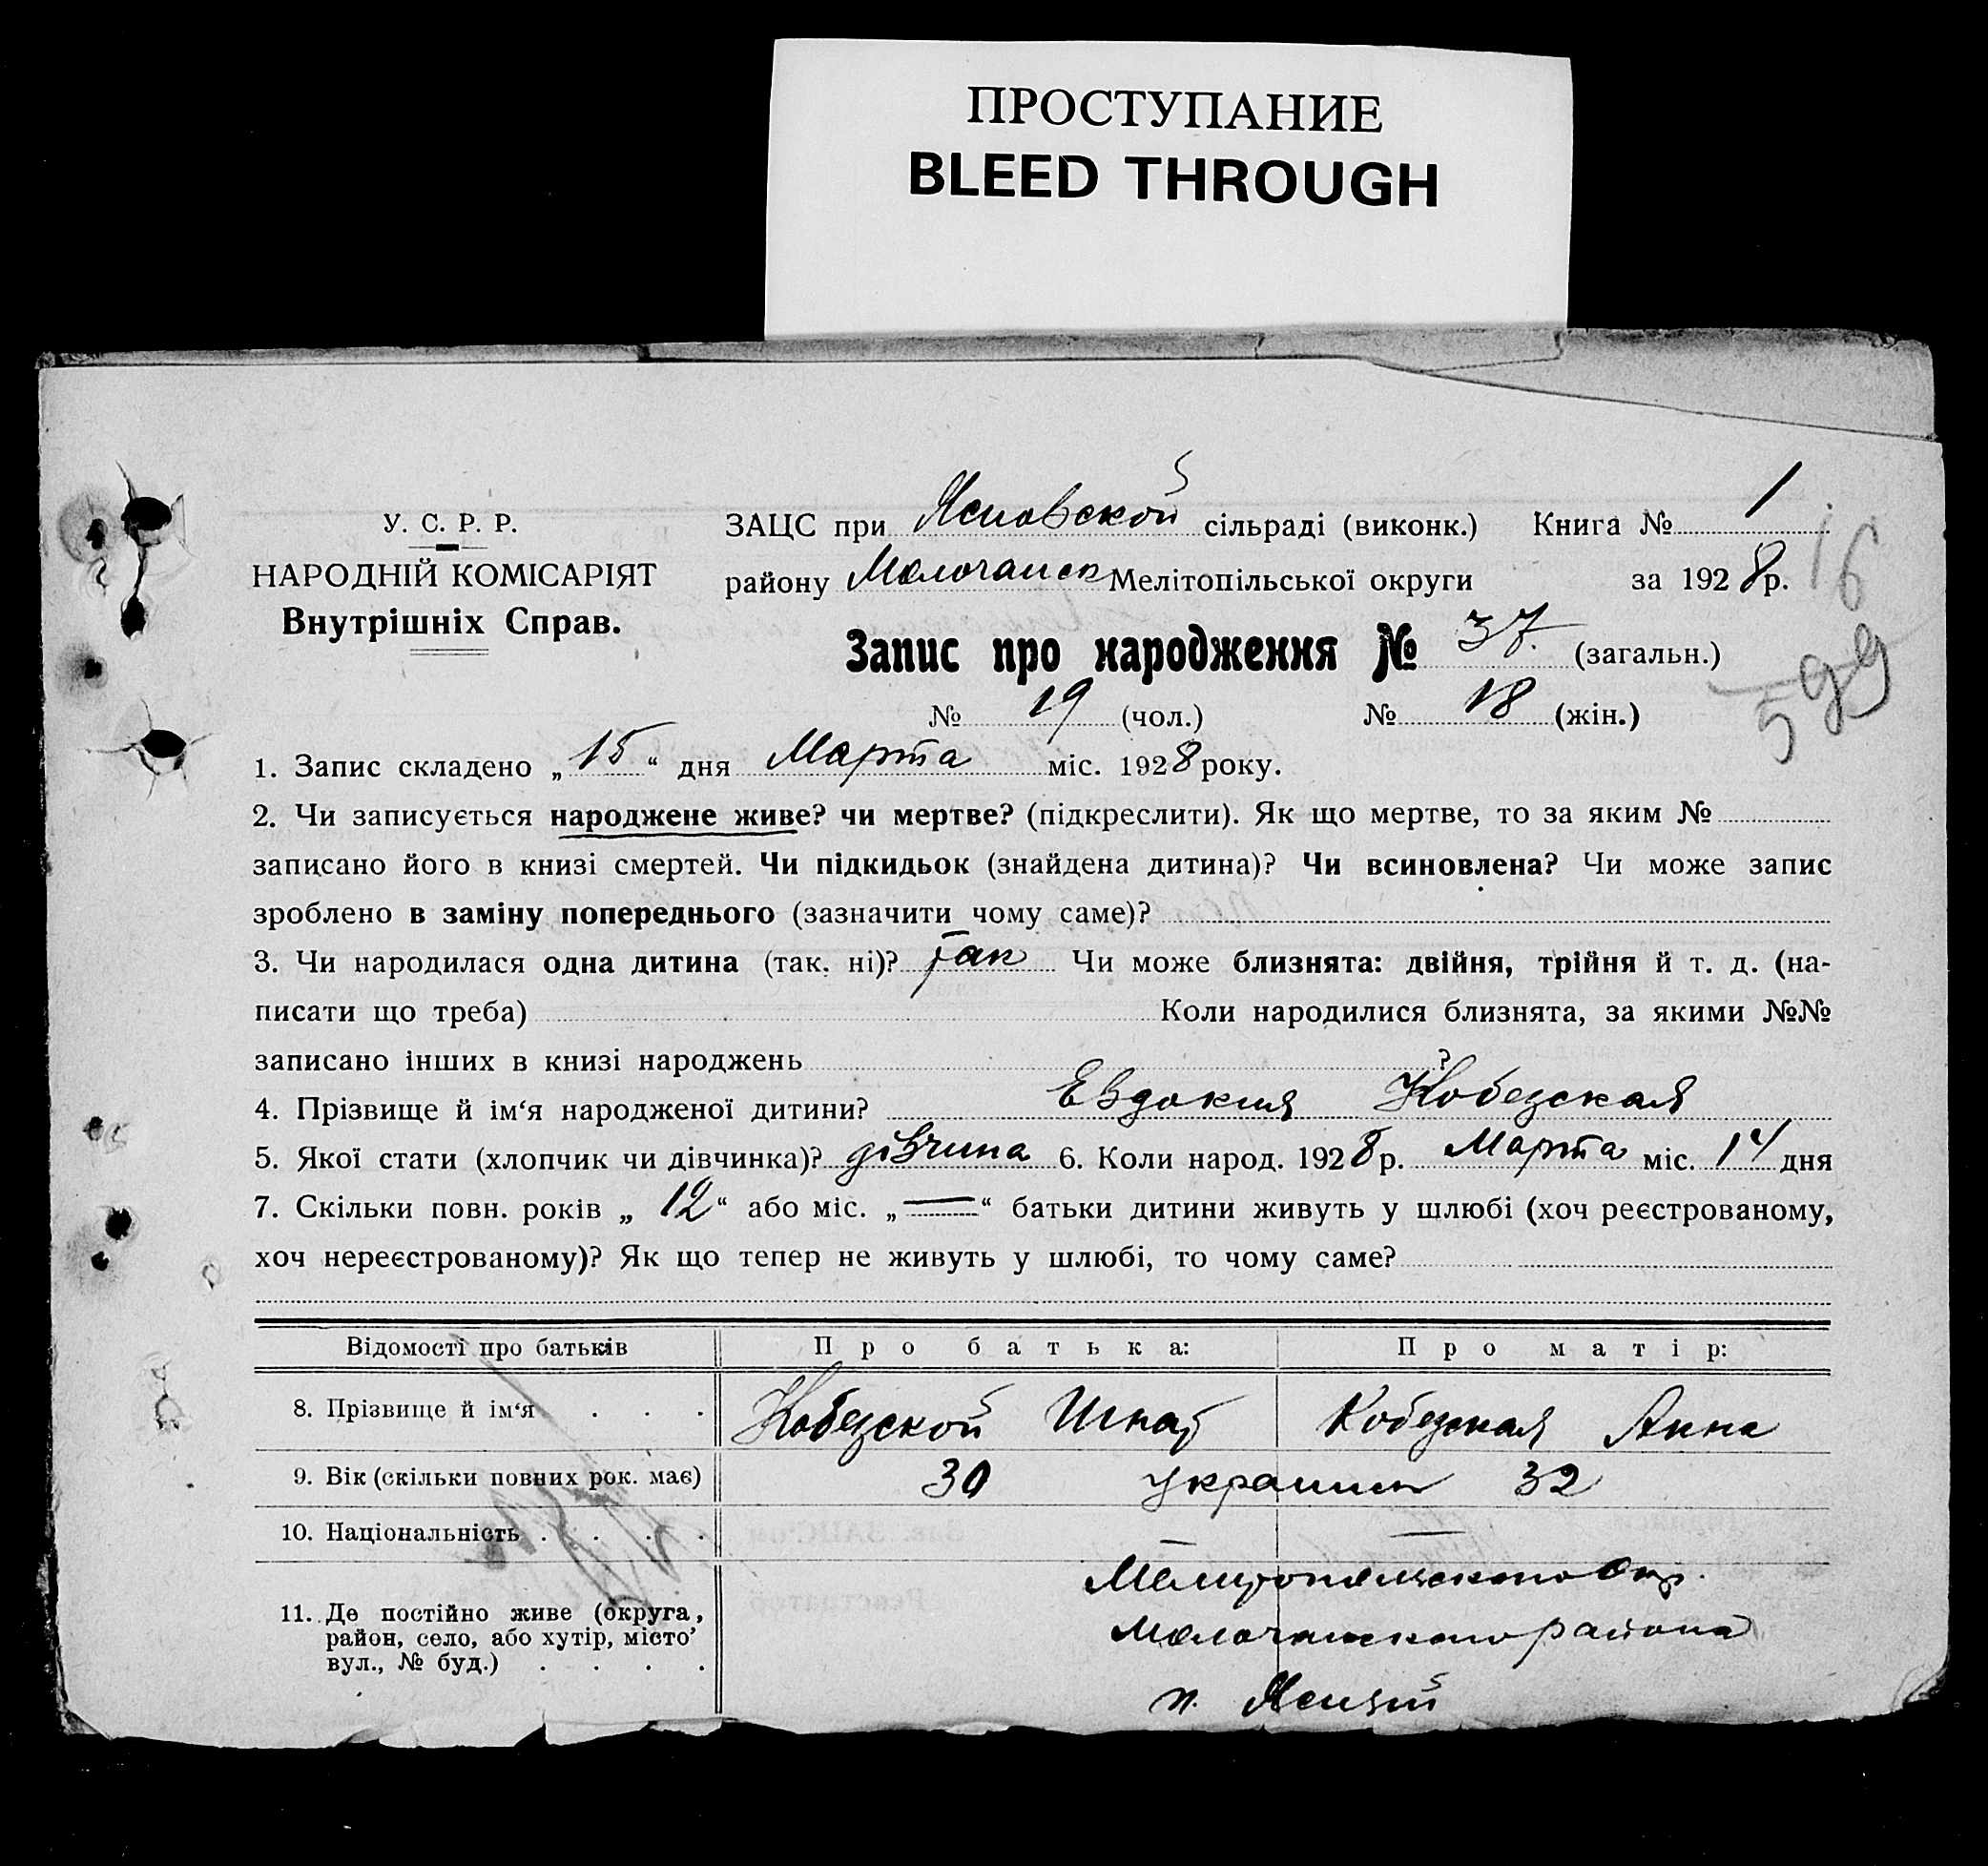 ПРОСТУПАНИЕ
BLEED THROUGH
У. С. Р. Р.
НАРОДНІЙ КОМІСАРІЯТ
Внутрішніх Справ.
ЗАЦС при Ясновской сільраді (виконк.) Книга № 1
району Молочанск Мелітопільської округи за 1928 р.
16
599
Запис про народження № 37. (загальн.)
№ 19 (чол.) № 18 (жін.)
1. Запис складено „15“ дня Марта міс. 1928 року.
2. Чи записується народжене живе? чи мертве? (підкреслити). Як що мертве, то за яким №
записано його в книзі смертей. Чи підкидьок (знайдена дитина)? Чи всиновлена? Чи може запис
зроблено в заміну попереднього (зазначити чому саме)?
3. Чи народилася одна дитина (так. ні)? так Чи може близнята: двійня, трійня й т. д. (на-
писати що треба) Коли народилися близнята, за якими №№
записано інших в книзі народжень ?
4. Прізвище й ім‘я народженої дитини? Евдокия Кобезская
5. Якої стати (хлопчик чи дівчинка)? дівчина 6. Коли народ. 1928 р. Марта міс. 14 дня
7. Скільки повн. років „12“ або міс. „—“ батьки дитини живуть у шлюбі (хоч реєстрованому,
хоч нереєстрованому)? Як що тепер не живуть у шлюбі, то чому саме?
Відомості про батьків Про батька: Про матір:
8. Прізвище й ім‘я . . . Кобезской Игнат Кобезская Анна
9. Вік (скільки повних рок. має) 30 украинц 32
10. Національність . . . . —
11. Де постійно живе (округа, район, село, або хутір, місто’ вул., № буд.) . . . .
Мелитопольского Окр.
Молочанского района
п. Ясный